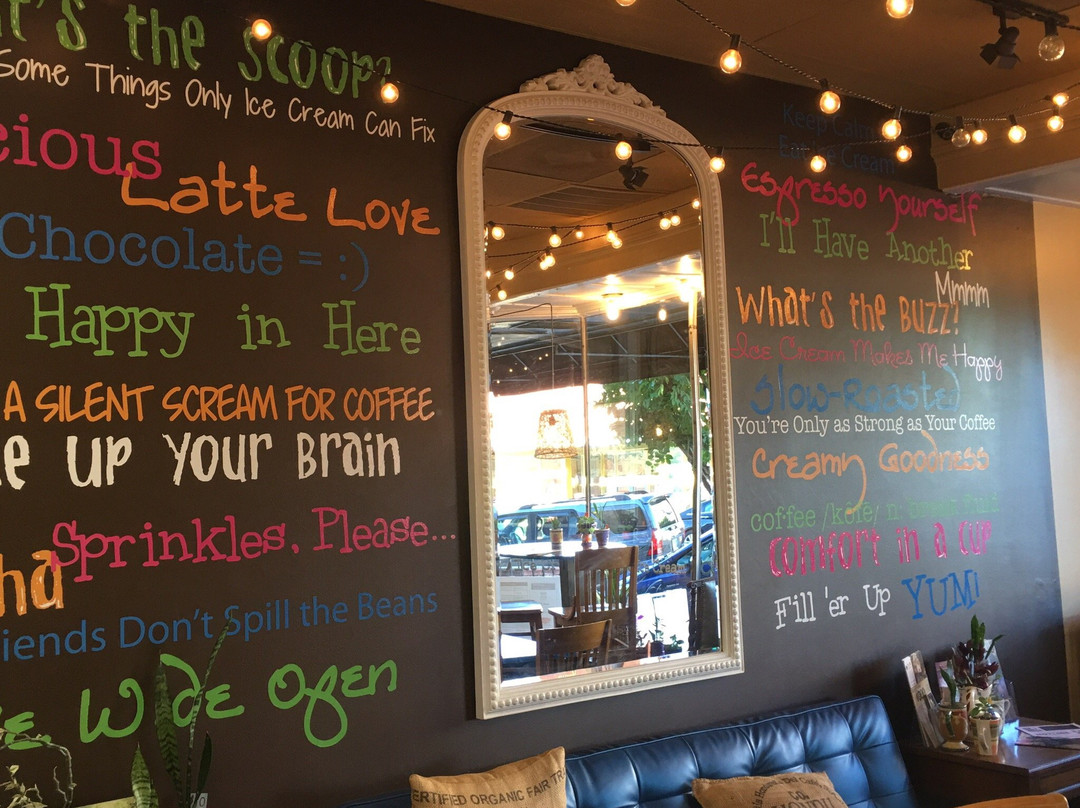 t's the scoop?
Some Things Only Ice Cream Can Fix
cious
Latte Love
Chocolate = :)
Happy in Here
A SILENT SCREAM FOR COFFEE
e up your Brain
Sprinkles, Please...
ha
iends Don't Spill the Beans
e Wide Open
Keep Calm
Eat Ice Cream
Espresso Yourself
I'll Have Another
Mmmm
What's the Buzz?
Ice Cream Makes Me Happy
Slow-Roasted
You're Only as Strong as Your Coffee
Creamy Goodness
coffee /kôfē/ n:
comfort in a cup
Fill 'er Up YUM!
ERTIFIED ORGANIC FAIR TRA